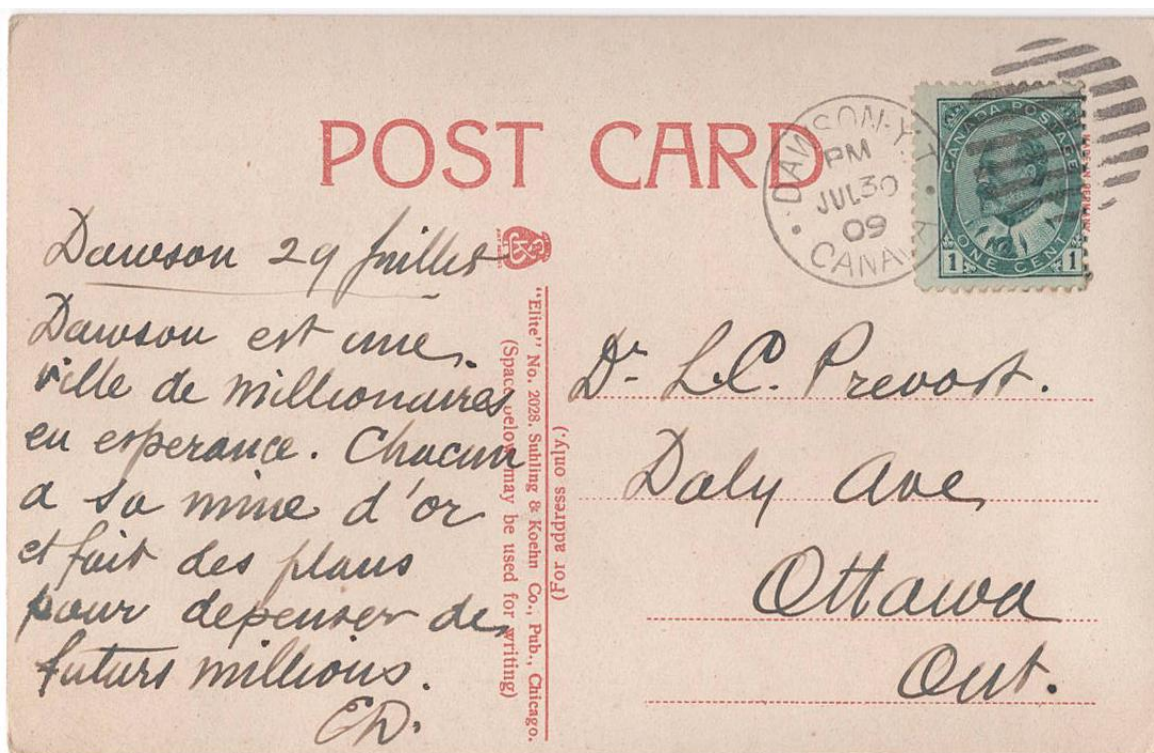 POST CARD
DAWSON-Y.T.
PM
JUL 30
09
CANADA
CANADA POSTAGE
ONE CENT
1 1
Dawson 29 Juillet
Dawson est une
ville de millionaires
en esperance. Chacun
a sa mine d'or
et fait des plans
pour depenser de
futurs millions.
ED.
"Elite" No. 2028. Suhling & Koehn Co., Pub., Chicago.
(Space below may be used for writing)
(For address only.)
Dr. L.C. Prevost.
Daly Ave
Ottawa
Ont.